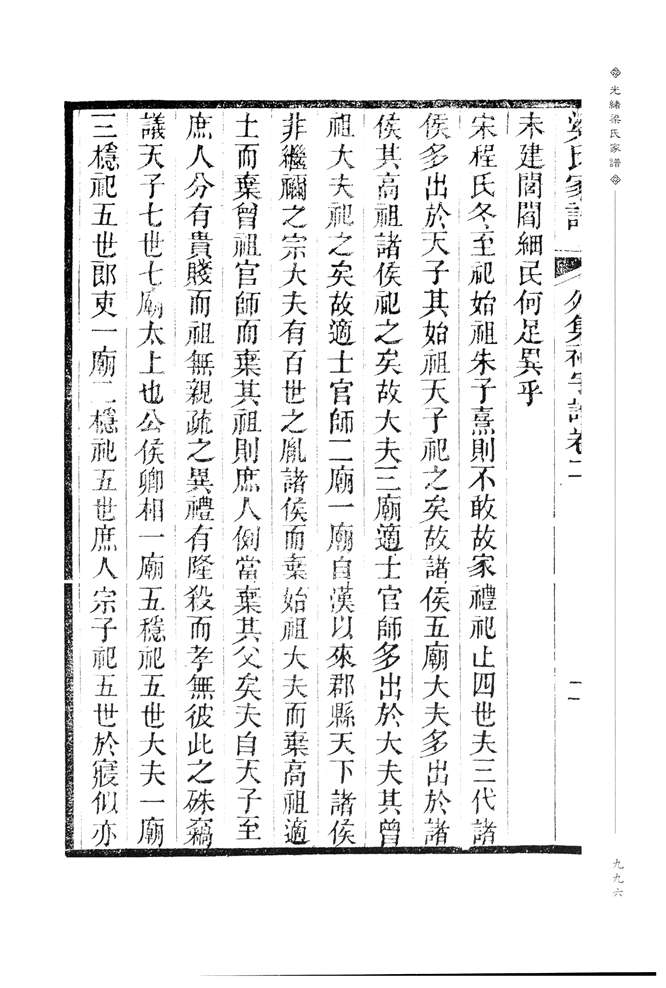 光緒梁氏家譜
九九六
梁氏家譜 外集補字譜卷二
二
未建閭閻細民何足異乎
宋程氏冬至祀始祖朱子熹則不敢故家禮祀止四世夫三代諸
侯多出於天子其始祖天子祀之矣故諸侯五廟大夫多出於諸
侯其高祖諸侯祀之矣故大夫三廟適士官師多出於大夫其曾
祖大夫祀之矣故適士官師二廟一廟自漢以來郡縣天下諸侯
非繼禰之宗大夫有百世之胤諸侯而棄始祖大夫而棄高祖適
士而棄曾祖官師而棄其祖則庶人側當棄其父矣夫自天子至
庶人分有貴賤而祖無親疏之異禮有隆殺而孝無彼此之殊竊
議天子七世七廟太上也公侯卿相一廟五穩祀五世大夫一廟
三穩祀五世郎吏一廟二穩祀五世庶人宗子祀五世於寢似亦